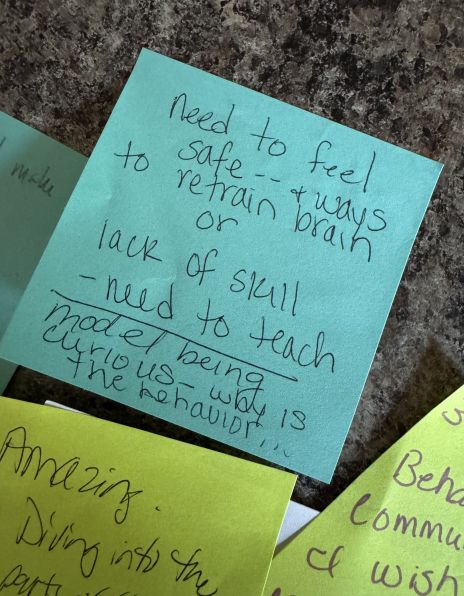 need to feel
safe -- + ways
to retrain brain
or
lack of skill
- need to teach
model being
curious - why is
the behavior...
make
Amazing.
Diving into the
part
Beha
Commu
& wish